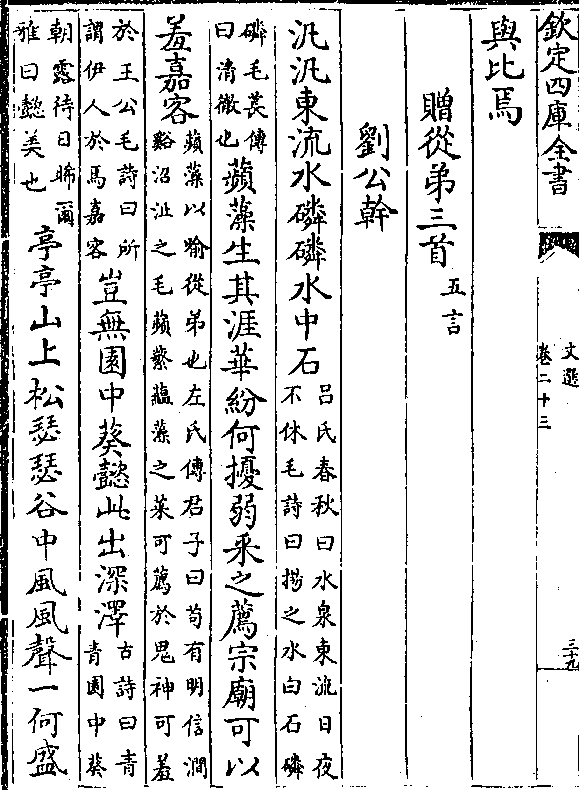 欽定四庫全書
文選
卷二十三
三十九
與比焉
贈從弟三首五言
劉公幹
汎汎東流水磷磷水中石呂氏春秋曰水泉東流日夜不休毛詩曰揚之水白石磷
磷毛萇傳曰清徹也蘋藻生其涯華紛何擾弱采之薦宗廟可以
羞嘉客蘋藻以喻從弟也左氏傳君子曰苟有明信澗谿沼沚之毛蘋蘩薀藻之菜可薦於鬼神可羞
於王公毛詩曰所謂伊人於焉嘉客豈無園中葵懿此出深澤古詩曰青青園中葵
朝露待日晞爾雅曰懿美也亭亭山上松瑟瑟谷中風風聲一何盛